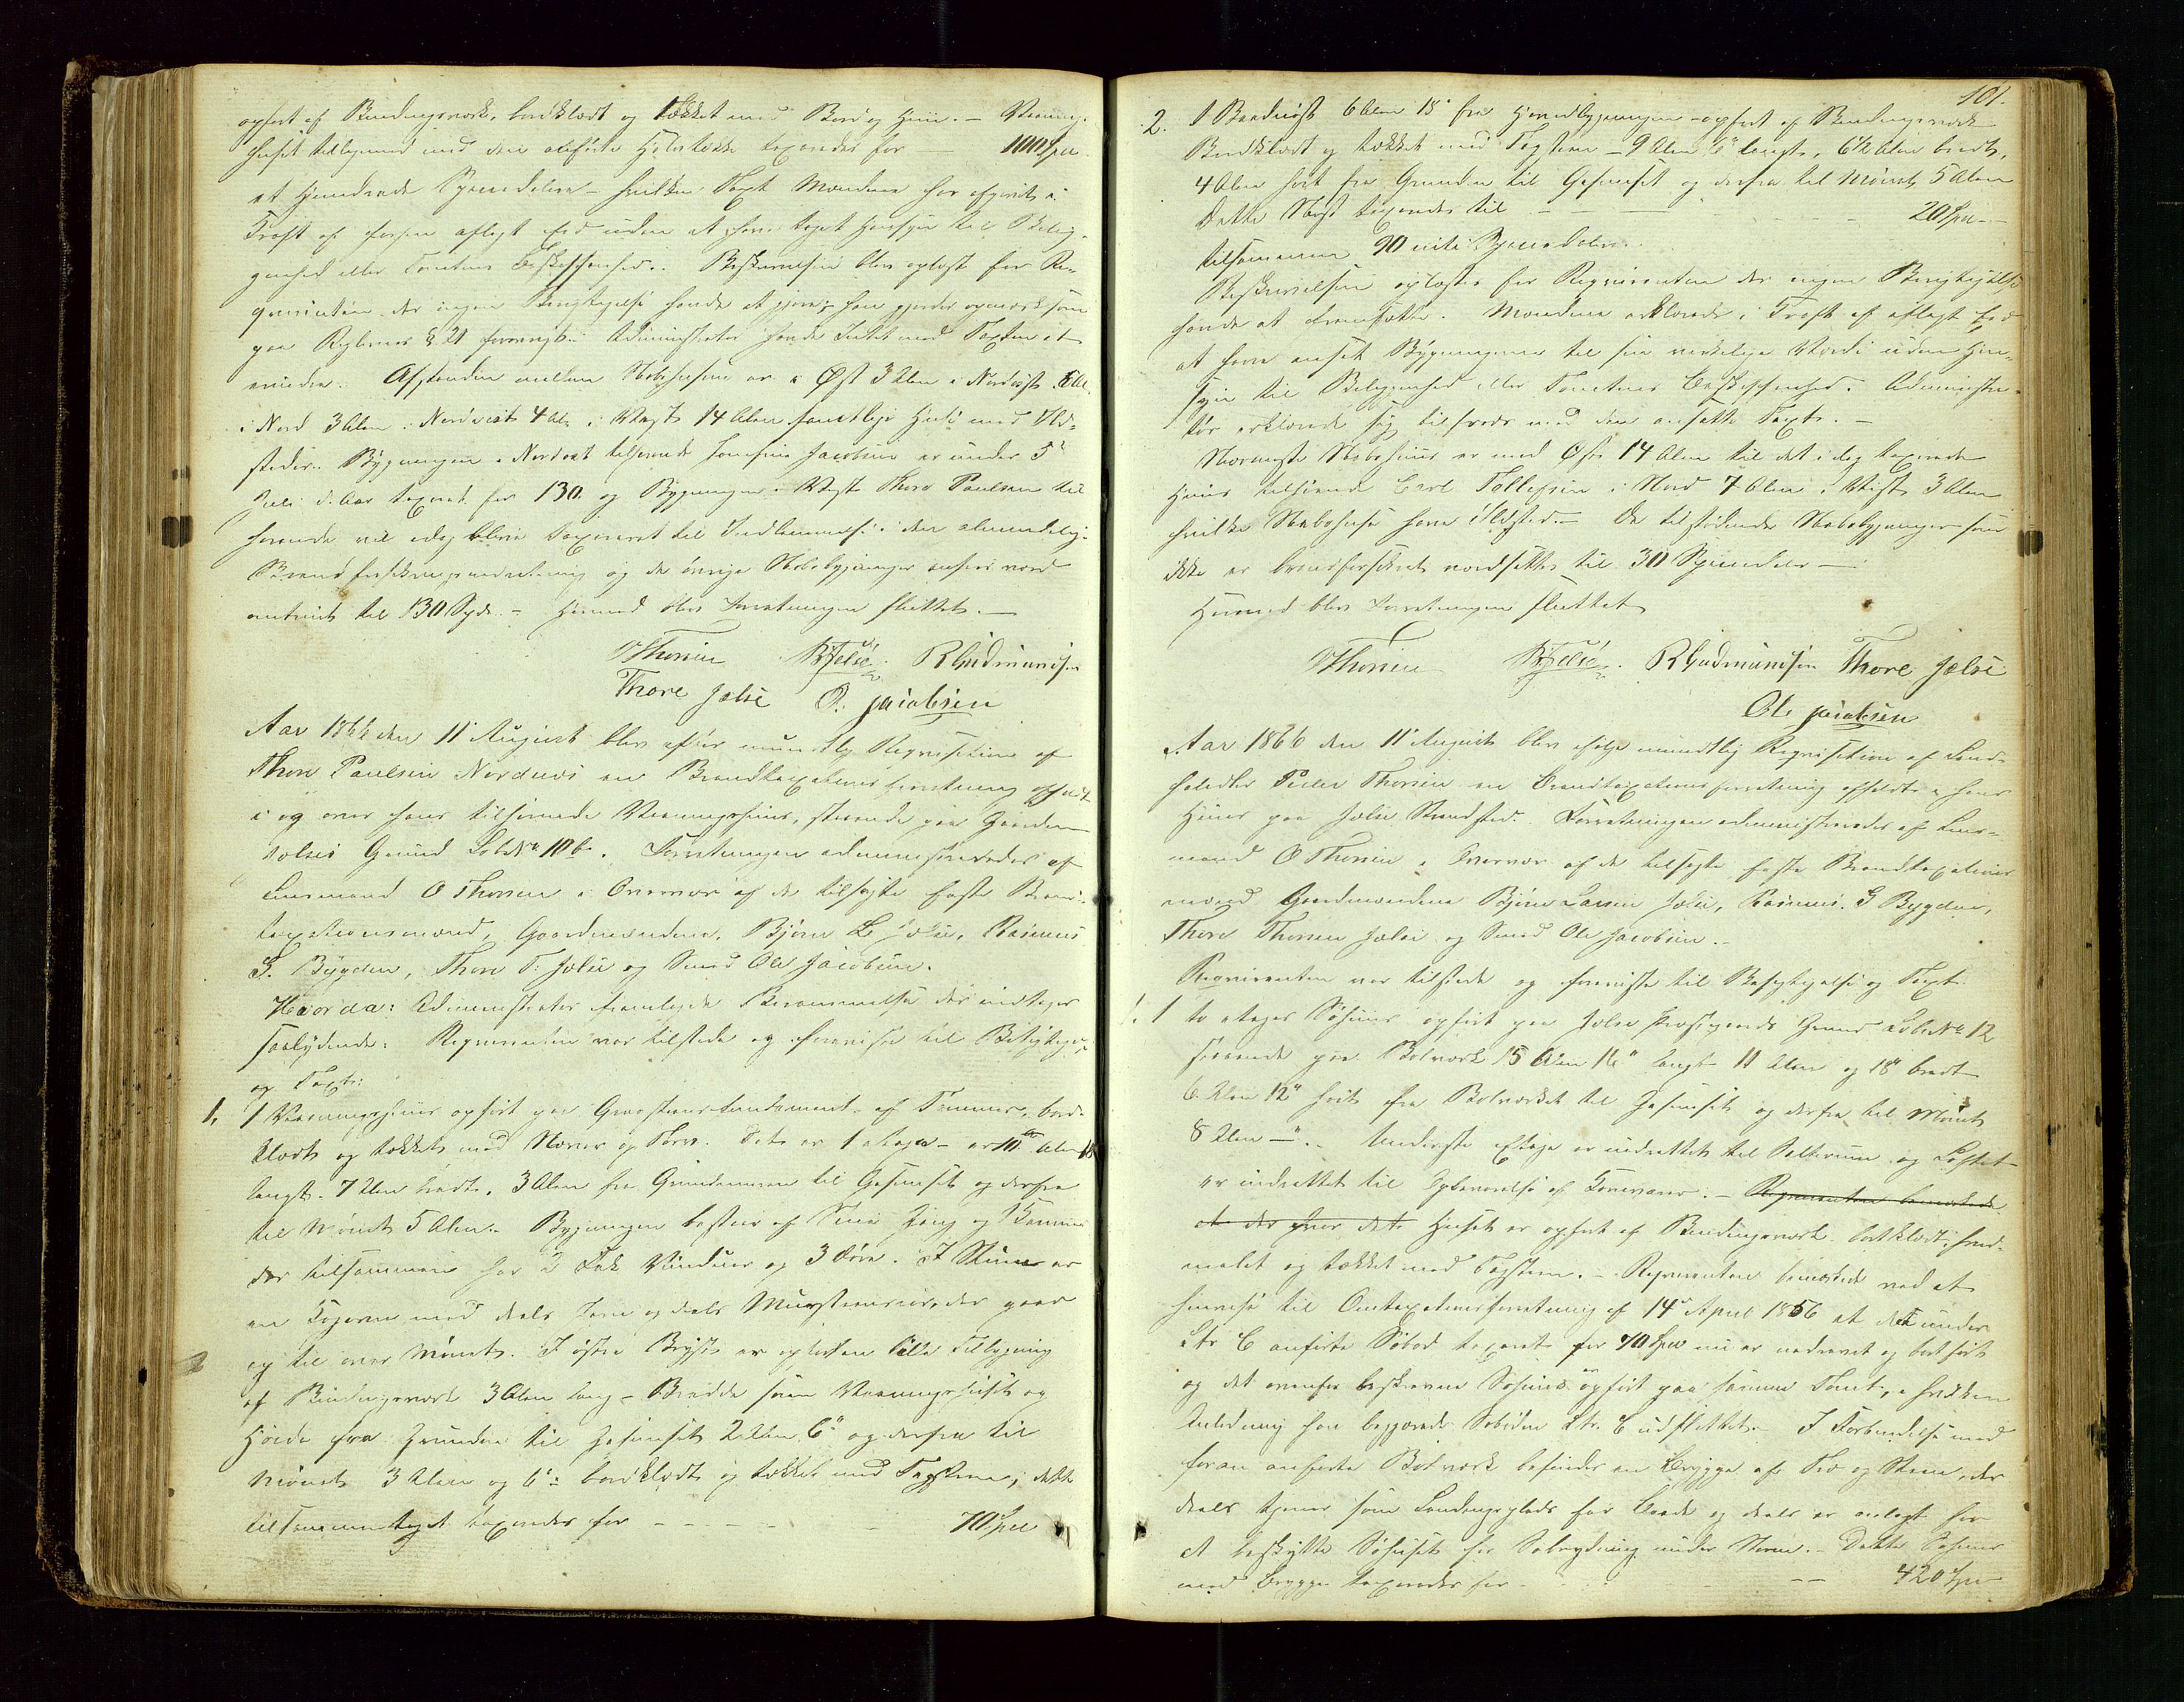 opført af Bindingsværk, bordklædt og tækket med Bord og Heller. – Vaanings-
huset tilligemed med den anførte taxeredes for 100 Spd
et Hundrede Speciedaler – hvilken Taxt Mændene har afgivet i
Kraft af forhen aflagt Eed uden at have taget Hensyn til Belig-
genhed eller Tomtens Beskaffenhed. Beskrivelsen blev oplæst for Re-
qvirenten der ingen Bemærkelse havde at gjøre; han gjordes opmærksom
paa Reglernes § 21. Administrator havde Intet mod Taxten at
erindre. Afstanden mellem Nabohusene er i Øst 3 Alen i Nordøst 6 Al.
i Nord 3 Alen i Nordvest 4 Al. i Vest 14 Alen samtlige Huse med Ild-
steder. Bygningen i Nordost tilhørende Jacobsen er under 5te
Juli d. Aar taxeret for 130 og Bygningen i Vest Thore Paulsen til-
hørende vil idag blive taxeret til Indlemmelse i den almindelige
Brandforsikringsindretning og de øvrige Nabobygninger ansees værd
omtrent til 130 Spd. – Hermed blev Forretningen sluttet. –
O Thorsen BJelse. R Gudmundsen
Thore Jelse O. Jacobsen
Aar 1866 den 11te August blev efter mundtlig Reqvisition af
Thore Paulsen Nordnes en Brandtaxationsforretning afholdt
i og over hans tilhørende Vaaningshuus, staaende paa Gaarden
Jelses Grund Løbe No 10b. Forretningen administreredes af
Lensmand O Thorsen i Overvær af de tilsagte faste Brand-
taxationsmænd, Gaardmændene, Bjørn L Jelse, Rasmus
G. Bygden, Thore T. Jelse og Smed Ole Jacobsen.
Hvorda: Administrator fremlagde Berammelse der indtages
saalydende: Reqvirenten var tilstede og foreviste til Besigtigelse
og Taxt:
1. 1 Vaaningshuus opført paa Graasteensfundament af Tømmer, bord-
klædt og tækket med Næver og Torv. Det er 1 etage – er 10 Alen 18"
langt. 7 Alen bredt, 3 Alen fra Grundmuren til Gesimset og derfra
til Mønet 5 Alen. Bygningen bestaar af Stue Gang og Kammer
der tilsammen har 2 Fag Vinduer og 3 Døre. I Stuen er
en Kogeovn med deels Jern og deels Muursteensrør, der gaar
op til over Mønet. I østre Bryst er opført en lille Tilbygning
af Bindingsværk 3 Alen lang – Bredde som Vaaningshuset og
Høide fra Grunden til Gesimset 2 Alen 6" og derfra til
Mønet 3 Alen og 6": bordklædt og tækket med Tagsteen; dette
tilsammentaget taxeredes for – – – – – 70 Spd
101.
2. 1 Baadnøst 6 Alen 18" fra Hovedbygningen – opført af Bindingsværk
Bordklædt og tækket med Tagsteen – 9 Alen 6" langt, 6½ Alen bredt,
4 Alen høit fra Grunden til Gesimset og derfra til Mønet 5 Alen
Dette Nøst taxeredes til – – – – – 20 Spd –
tilsammen 90 niti Speciedaler.
Beskrivelsen oplæstes for Reqvirenten der ingen Bemærkelse
havde at fremsætte. Mændene erklærede i Kraft af aflagt Eed
at have ansat Bygningerne til sin virkelige Værdi uden Hen-
syn til Beliggenhed eller Tomtens Beskaffenhed. Administra-
tor erklærede sig tilfreds med den ansatte Taxt. –
Nærmeste Nabohuus er mod Øst 14 Alen til det idag taxerede
Huus tilhørende Carl Tollefsen i Nord 7 Alen i Vest 3 Alen
hvilke Nabohuse have Ildsted. – De tilstødende Nabobygninger som
ikke er brandforsikret værdsættes til 30 Speciedaler –
Hermed blev Forretningen sluttet
O Thorsen BJelse. R Gudmundsen Thore Jelse
Ole Jacobsen
Aar 1866 den 11te August blev ifølge mundtlig Reqvisition af Land-
handler Peder Thorsen en Brandtaxationsforretning afholdt i hans
Huus paa Jelse Strandsted. Forretningen administreredes af Lens-
mand O Thorsen i Overvær af de tilsagte faste Brandtaxations-
mænd Gaardmændene Bjørn Larsen Jelse, Rasmus G Bygden,
Thore Thorsen Jelse og Smed Ole Jacobsen. –
Reqvirenten var tilstede og foreviste til Besigtigelse og Taxt
1. 1 to etages Søhuus opført paa Jelse Præstegaards Grund Løbe No 12
staaende paa Bolværk 15 Alen 16" langt 11 Alen og 18" bredt
6 Alen 12" høit fra Bolværket til Gesimset og derfra til Mønet
8 Alen –". Underste Etage er indrettet til Salterum og Loftet
er indrettet til Opbevarelse af Kornvarer. – Reqvirenten bemærkede
at der paa det Huset er opført af Bindingsværk bordklædt, hvid-
malet og tækket med Tagsteen. – Reqvirenten bemærkede ved at
henvise til Omtaxationsforretning af 14de April 1856 at det under
Ltr C anførte Søbod taxeret for 70 Spd nu er nedrevet og bortført
og det ovenfor beskrevne Søhuus er opført paa samme Tomt, i hvilken
Anledning han begjærede Søboden Ltr. C udslettet. – I Forbindelse med
foran anførte Bolværk befindes en Brygge af Træ og Steen, der
deels tjener som Landingsplads for Baade og deels er anlagt for
at beskytte Søhuset for Søbrydning under Storm. – Dette Søhuus
med Brygge taxeredes for – – – – 420 Spd